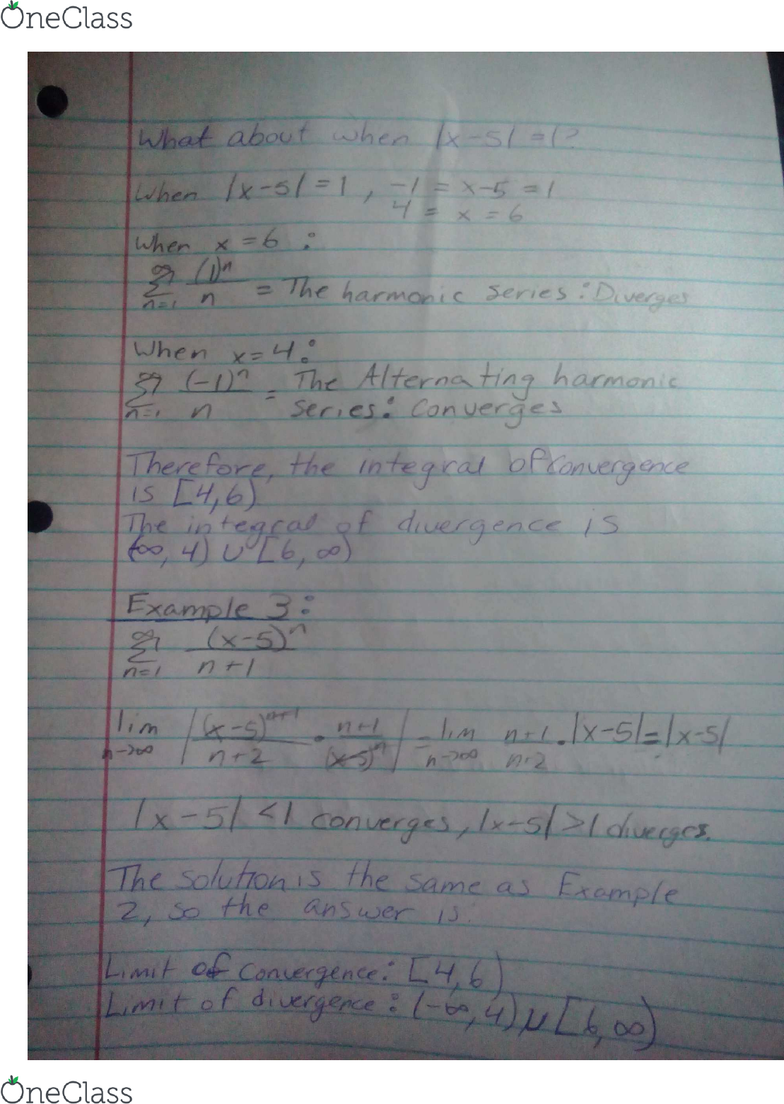 OneClass
What about when |x-5| = 1?
When |x-5| = 1 , -1 = x-5 = 1
4 = x = 6
When x = 6 :
∞ (1)ⁿ
Σ n = The harmonic series : Diverges
n=1
When x = 4 :
∞ (-1)ⁿ = The Alternating harmonic
Σ n series : Converges
n=1
Therefore, the integral of convergence
is [4,6)
The integral of divergence is
(∞, 4) ∪ [6, ∞)
Example 3 :
∞ (x-5)ⁿ
Σ n+1
n=1
lim | (x-5)ⁿ⁺¹ / n+2 • n+1 / (x-5)ⁿ | = lim n+1 / n+2 • |x-5| = |x-5|
n→∞ n→∞
|x-5| < 1 converges, |x-5| > 1 diverges.
The solution is the same as Example
2, so the answer is:
Limit of convergence : [4,6)
Limit of divergence : (-∞, 4) ∪ [6, ∞)
OneClass